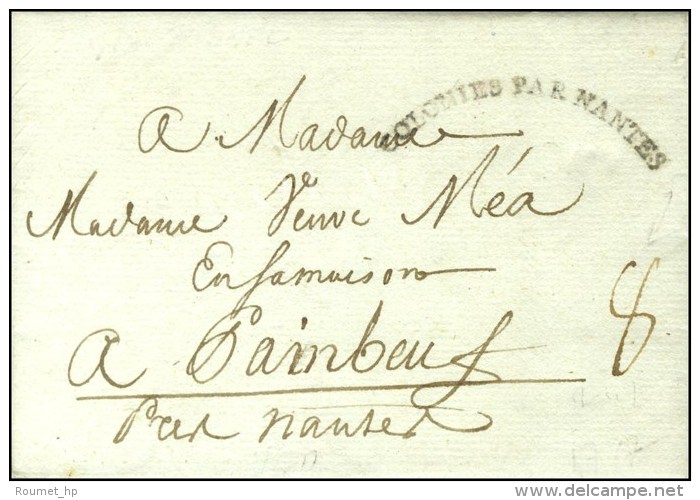 COLONIES PAR NANTES
A Madame
Madame Veuve Méa
En sa maison
A Painbeuf
8
Pres nantes
Roumet_hp
delcampe.net